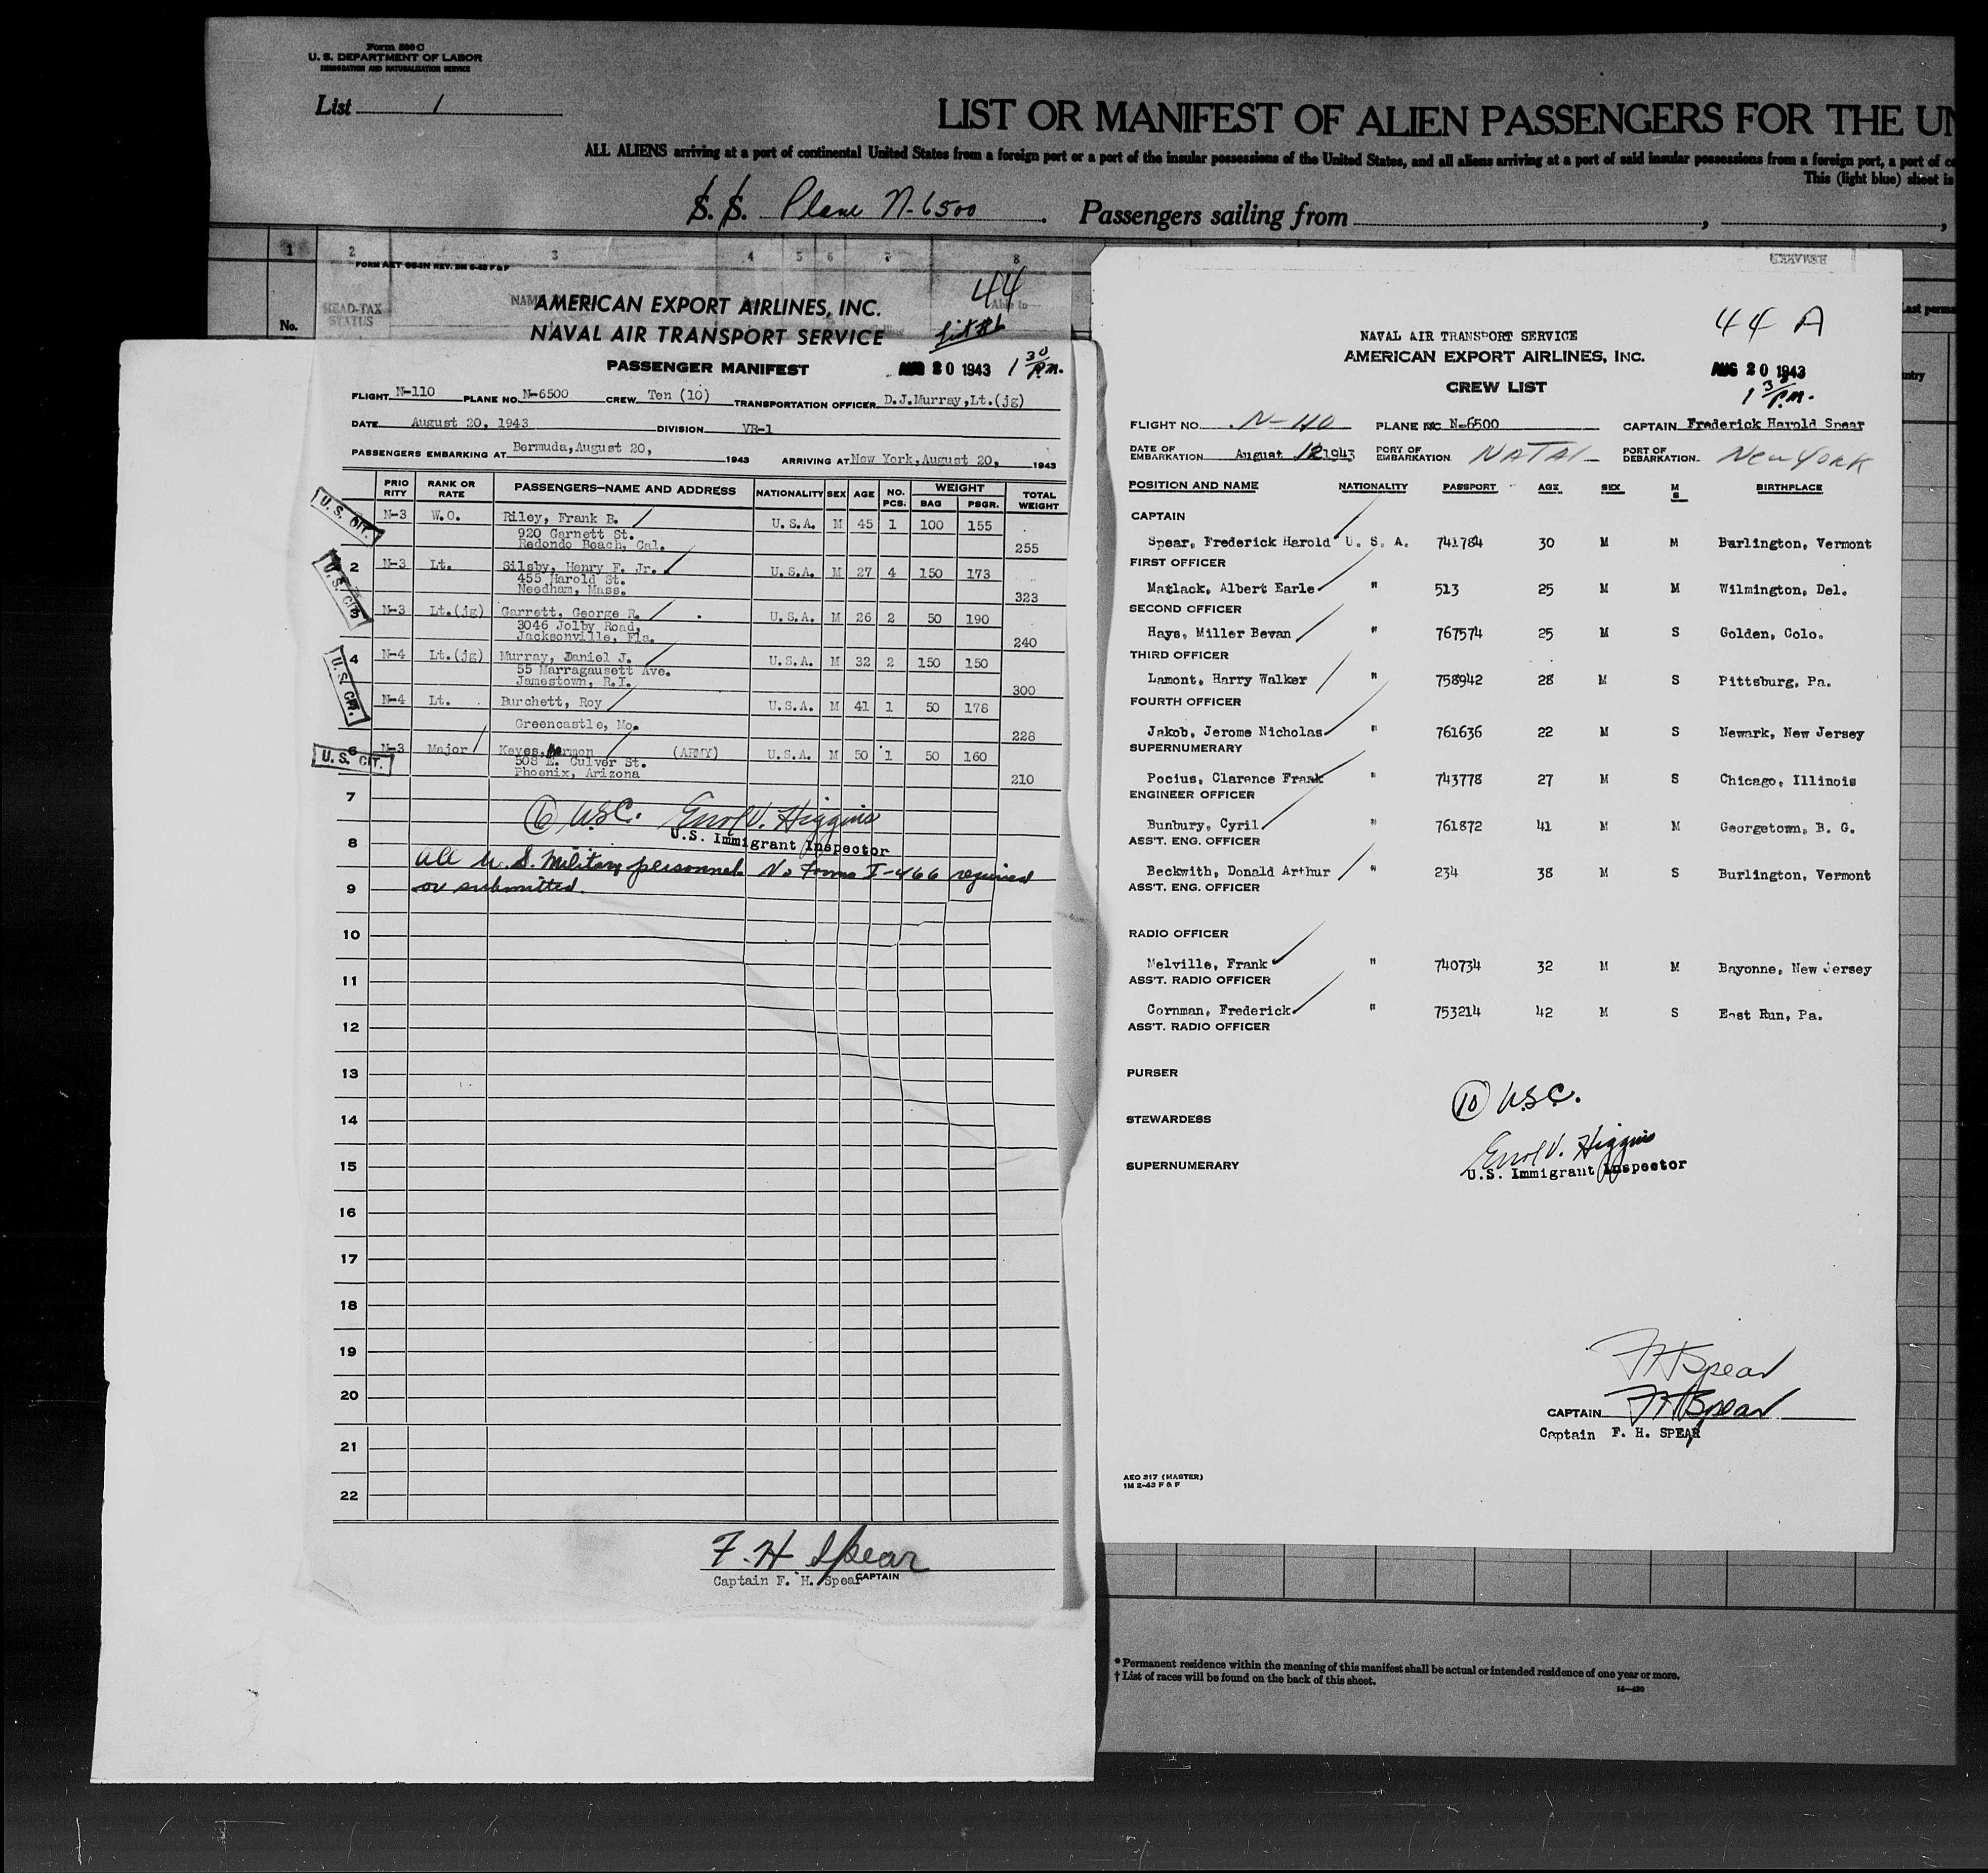 Form 500 C
U. S. DEPARTMENT OF LABOR
IMMIGRATION AND NATURALIZATION SERVICE
List 1
LIST OR MANIFEST OF ALIEN PASSENGERS FOR THE UN
ALL ALIENS arriving at a port of continental United States from a foreign port or a port of the insular possessions of the United States, and all aliens arriving at a port of said insular possessions from a foreign port, a port of co
This (light blue) sheet is
S. S. Plane N-6500. Passengers sailing from , ,
1 2 3 4 5 6 7 8
No. HEAD-TAX STATUS
44
AMERICAN EXPORT AIRLINES, INC.
NAVAL AIR TRANSPORT SERVICE
PASSENGER MANIFEST AUG 20 1943 1 30 P.M.
FLIGHT N-110 PLANE NO. N-6500 CREW Ten (10) TRANSPORTATION OFFICER D.J.Murray,Lt.(jg)
DATE August 20, 1943 DIVISION VR-1
PASSENGERS EMBARKING AT Bermuda,August 20, 1943 ARRIVING AT New York,August 20, 1943
PRIO RITY RANK OR RATE PASSENGERS—NAME AND ADDRESS NATIONALITY SEX AGE NO. PCS. WEIGHT BAG PSGR. TOTAL WEIGHT
U. S. CIT. N-3 W.O. Riley, Frank B. U.S.A. M 45 1 100 155
920 Garnett St.
Redondo Beach, Cal. 255
2 N-3 Lt. Silsby, Henry F. Jr. U.S.A. M 27 4 150 173
U.S. CIT. 455 Harold St.
Needham, Mass. 323
3 N-3 Lt.(jg) Garrett, George R. U.S.A. M 26 2 50 190
3046 Jolby Road,
Jacksonville, Fla. 240
4 N-4 Lt.(jg) Murray, Daniel J. U.S.A. M 32 2 150 150
U.S. CIT. 55 Marragausett Ave.
Jamestown, R.I. 300
N-4 Lt. Burchett, Roy U.S.A. M 41 1 50 178
Greencastle, Mo. 228
6 N-3 Major Keyes, Harmon (ARMY) U.S.A. M 50 1 50 160
U. S. CIT. 508 E. Culver St.
Phoenix, Arizona 210
7
(6) USC. Errol V. Higgins
U.S. Immigrant Inspector
8
All U.S. Military personnel. No Forms I-466 required
9 or submitted.
10
11
12
13
14
15
16
17
18
19
20
21
22
F. H. Spear
Captain F. H. Spear CAPTAIN
44 A
NAVAL AIR TRANSPORT SERVICE
AMERICAN EXPORT AIRLINES, INC.
AUG 20 1943
CREW LIST
1 30 P.M.
FLIGHT NO. N-110 PLANE NO. N-6500 CAPTAIN Frederick Harold Spear
DATE OF EMBARKATION August 12 1943 PORT OF EMBARKATION NATAL PORT OF DEBARKATION New York
POSITION AND NAME NATIONALITY PASSPORT AGE SEX M S BIRTHPLACE
CAPTAIN
Spear, Frederick Harold U. S. A. 741784 30 M M Burlington, Vermont
FIRST OFFICER
Matlack, Albert Earle " 513 25 M M Wilmington, Del.
SECOND OFFICER
Hays, Miller Bevan " 767574 25 M S Golden, Colo.
THIRD OFFICER
Lamont, Harry Walker " 758942 28 M S Pittsburg, Pa.
FOURTH OFFICER
Jakob, Jerome Nicholas " 761636 22 M S Newark, New Jersey
SUPERNUMERARY
Pocius, Clarence Frank " 743778 27 M S Chicago, Illinois
ENGINEER OFFICER
Bunbury, Cyril " 761872 41 M M Georgetown, B. G.
ASS'T. ENG. OFFICER
Beckwith, Donald Arthur " 234 38 M S Burlington, Vermont
ASS'T. ENG. OFFICER
RADIO OFFICER
Melville, Frank " 740734 32 M M Bayonne, New Jersey
ASS'T. RADIO OFFICER
Cornman, Frederick " 753214 42 M S East Run, Pa.
ASS'T. RADIO OFFICER
PURSER
(10) USC.
STEWARDESS
Errol V. Higgins
SUPERNUMERARY
U.S. Immigrant Inspector
FHSpear
CAPTAIN FHSpear
Captain F. H. SPEAR
AEO 317 (MASTER)
1M 2-43 F & F
* Permanent residence within the meaning of this manifest shall be actual or intended residence of one year or more.
† List of races will be found on the back of this sheet.